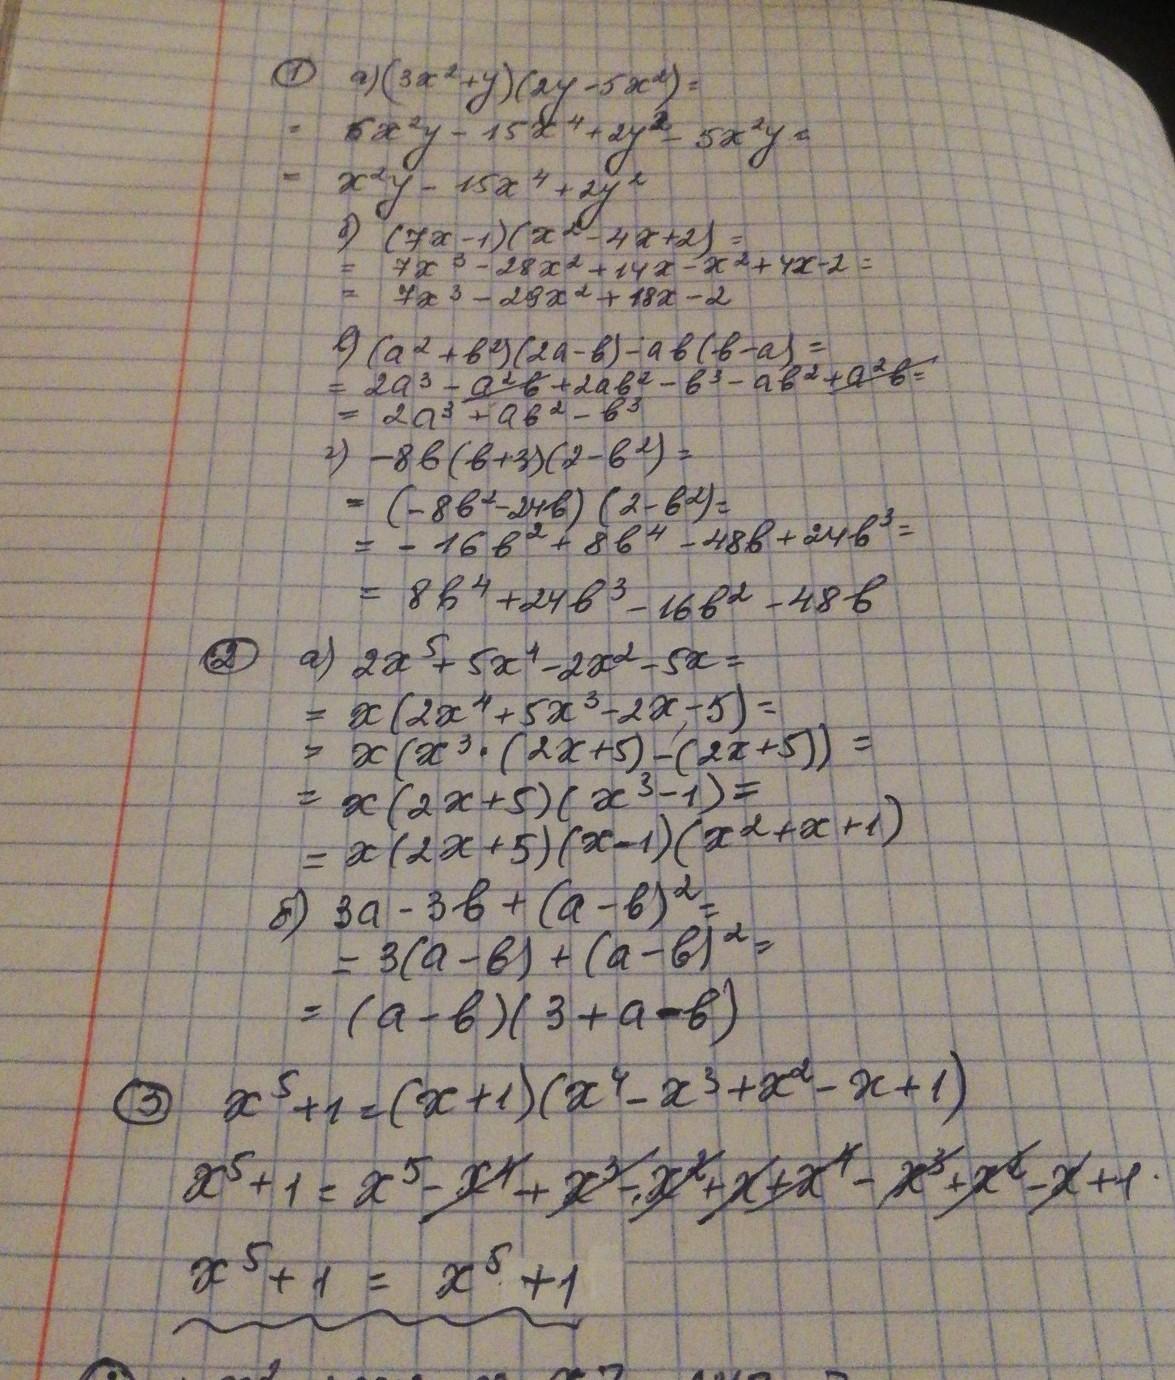 ① а) (3x²+y)(2y-5x²)=
= 6x²y - 15x⁴ + 2y² - 5x²y =
= x²y - 15x⁴ + 2y²
б) (7x-1)(x²-4x+2) =
= 7x³ - 28x² + 14x - x² + 4x - 2 =
= 7x³ - 29x² + 18x - 2
в) (a²+b²)(2a-b) - ab(b-a) =
= 2a³ - a²b + 2ab² - b³ - ab² + a²b =
= 2a³ + ab² - b³
г) -8b(b+3)(2-b²) =
= (-8b²-24b)(2-b²) =
= -16b² + 8b⁴ - 48b + 24b³ =
= 8b⁴ + 24b³ - 16b² - 48b
② а) 2x⁵ + 5x⁴ - 2x² - 5x =
= x(2x⁴ + 5x³ - 2x - 5) =
= x(x³·(2x+5) - (2x+5)) =
= x(2x+5)(x³-1) =
= x(2x+5)(x-1)(x²+x+1)
б) 3a - 3b + (a-b)² =
= 3(a-b) + (a-b)² =
= (a-b)(3+a-b)
③ x⁵+1 = (x+1)(x⁴-x³+x²-x+1)
x⁵+1 = x⁵ - x⁴ + x³ - x² + x + x⁴ - x³ + x² - x + 1.
x⁵+1 = x⁵+1